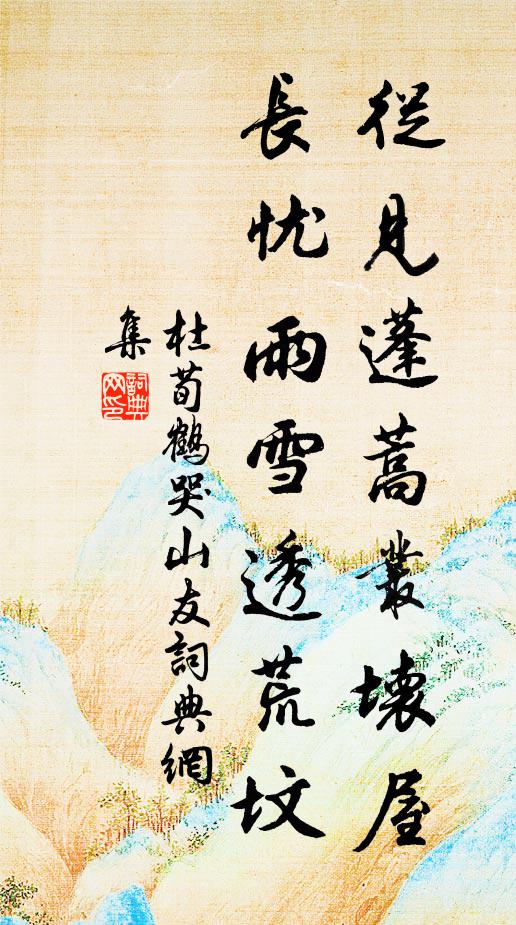 從見蓬蒿叢壞屋
長忧雨雪透荒坟
杜荀鶴哭山友詞典網
集
詞典
网印